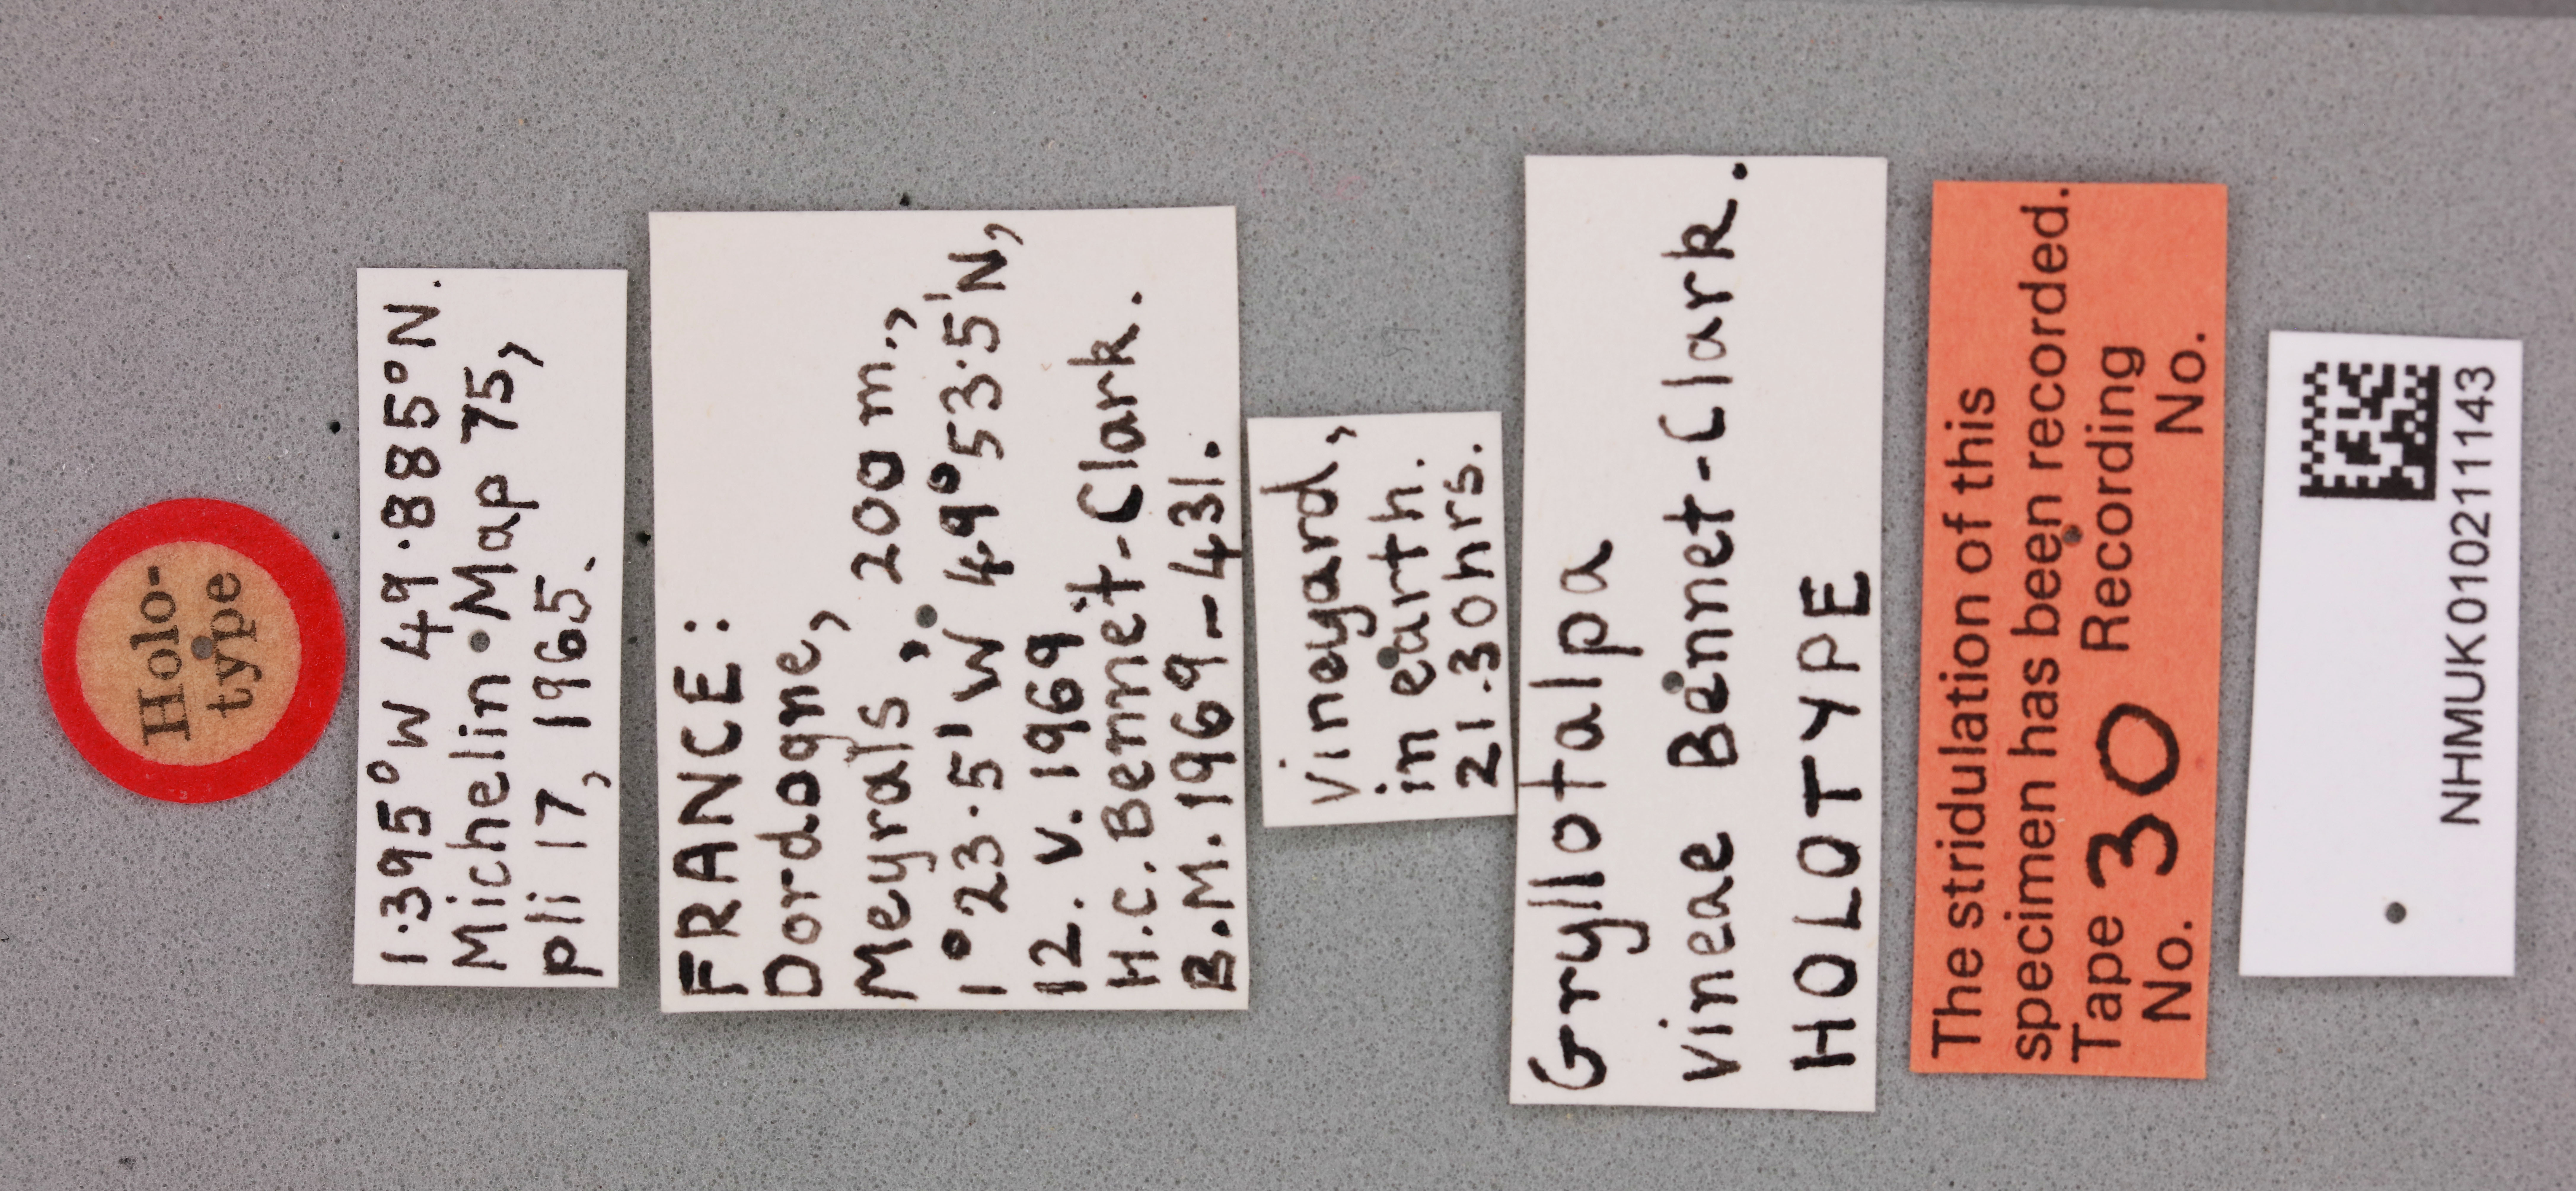 Holo-
type
1·395°W 49·885°N.
Michelin Map 75,
pli 17, 1965.
FRANCE:
Dordogne,
Meyrals, 200m.,
1°23·5'W 49°53·5'N,
12.V.1969
H.C.Bennet-Clark.
B.M.1969-431.
Vineyard,
in earth.
21.30hrs.
Gryllotalpa
vineae Bennet-Clark.
HOLOTYPE
The stridulation of this
specimen has been recorded.
Tape 30 Recording
No. No.
NHMUK010211143